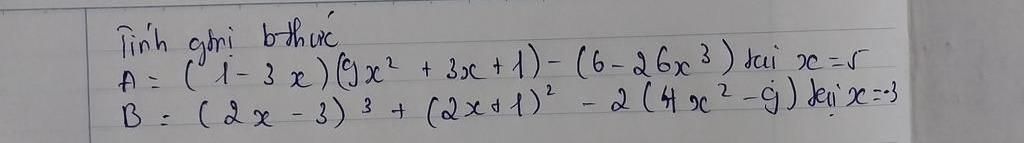 Tính gtri bthức
A = (1 - 3x)(9x² + 3x + 1) - (6 - 26x³) tại x = 5
B = (2x - 3)³ + (2x + 1)² - 2(4x² - 9) tại x = -3